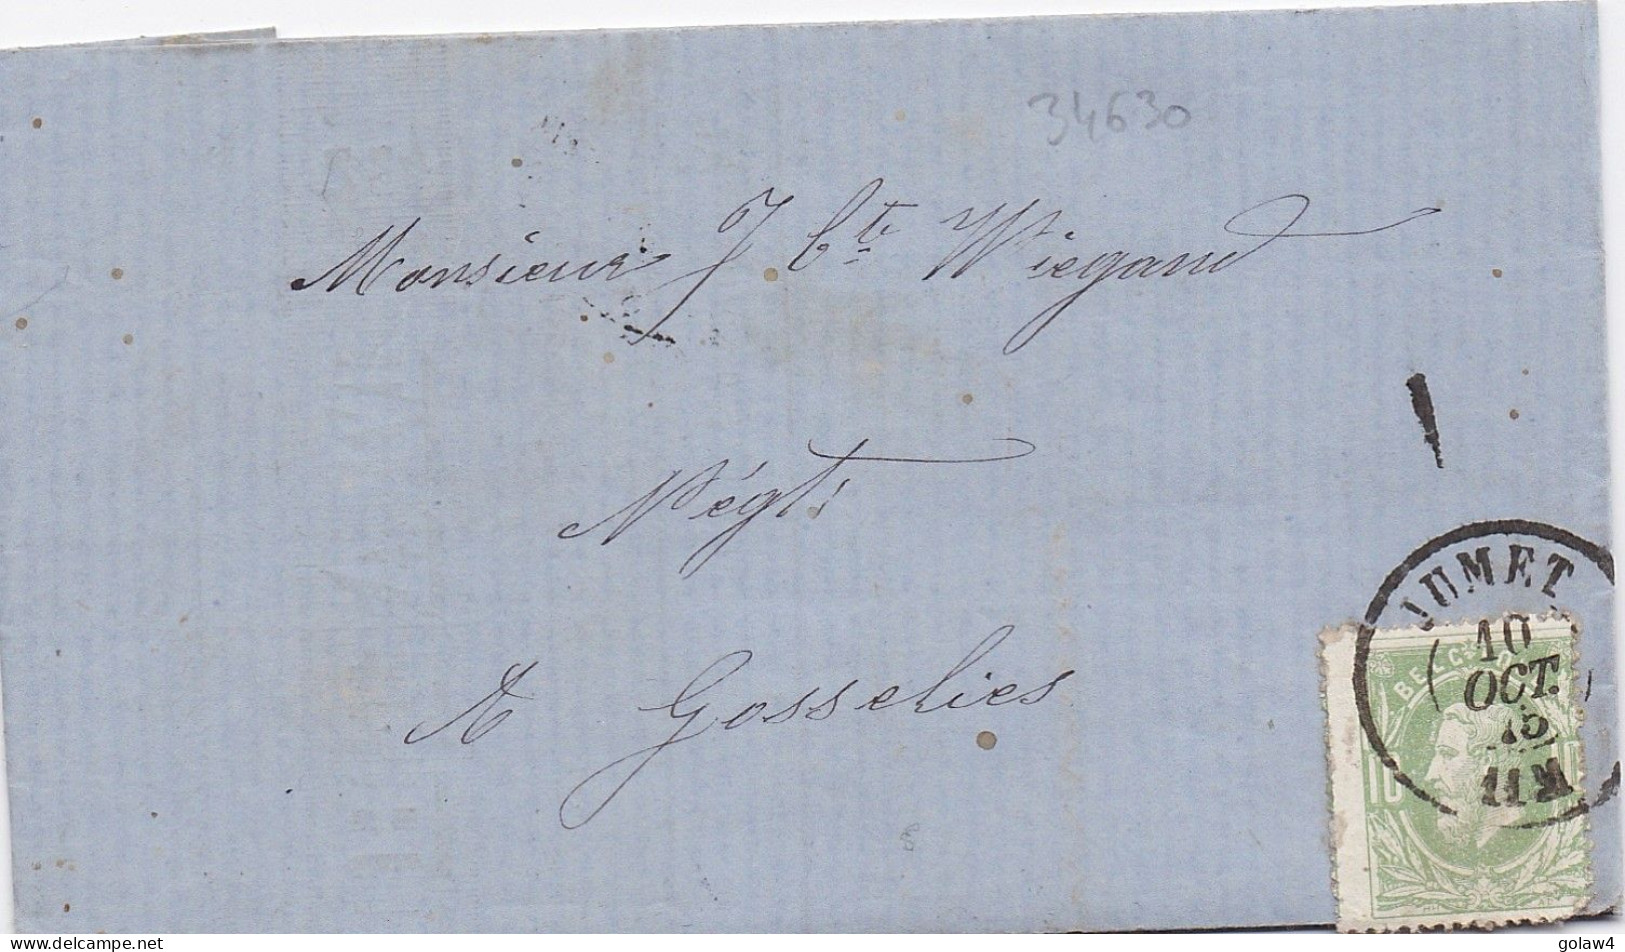 34630
Monsieur J Bte Wiegand
Négt:
A Gosselies
JUMET
10
OCT.
75
11 M
BELGIQUE
10
www.delcampe.net
golaw4